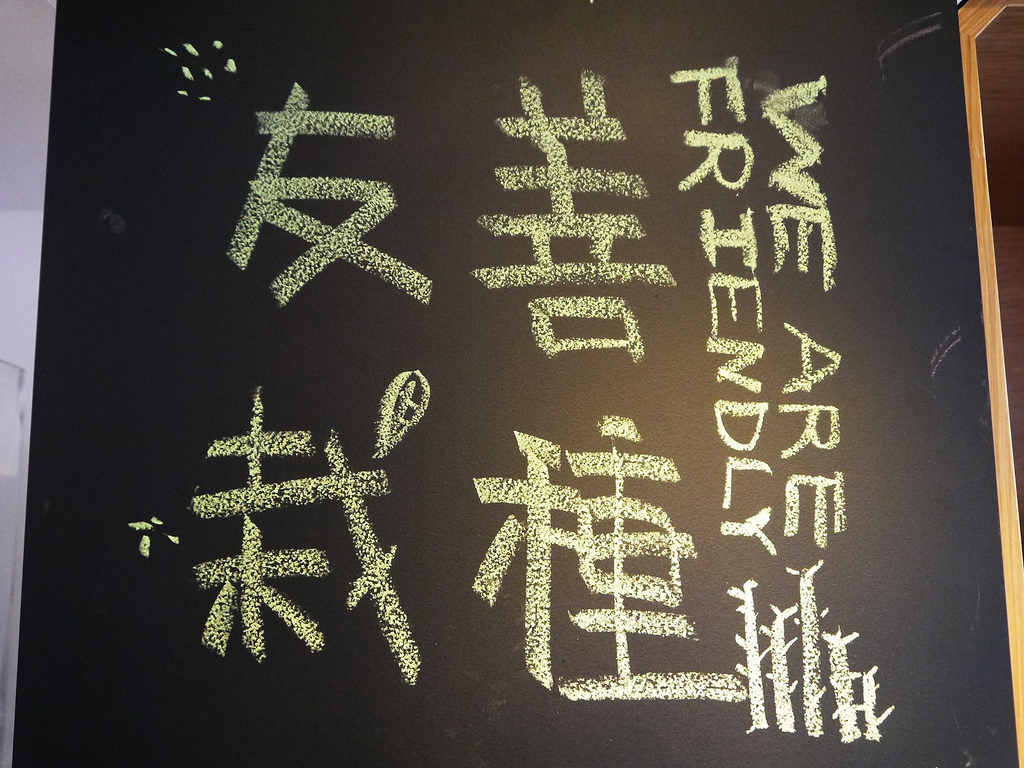 友善
栽種
WE ARE
FRIENDLY